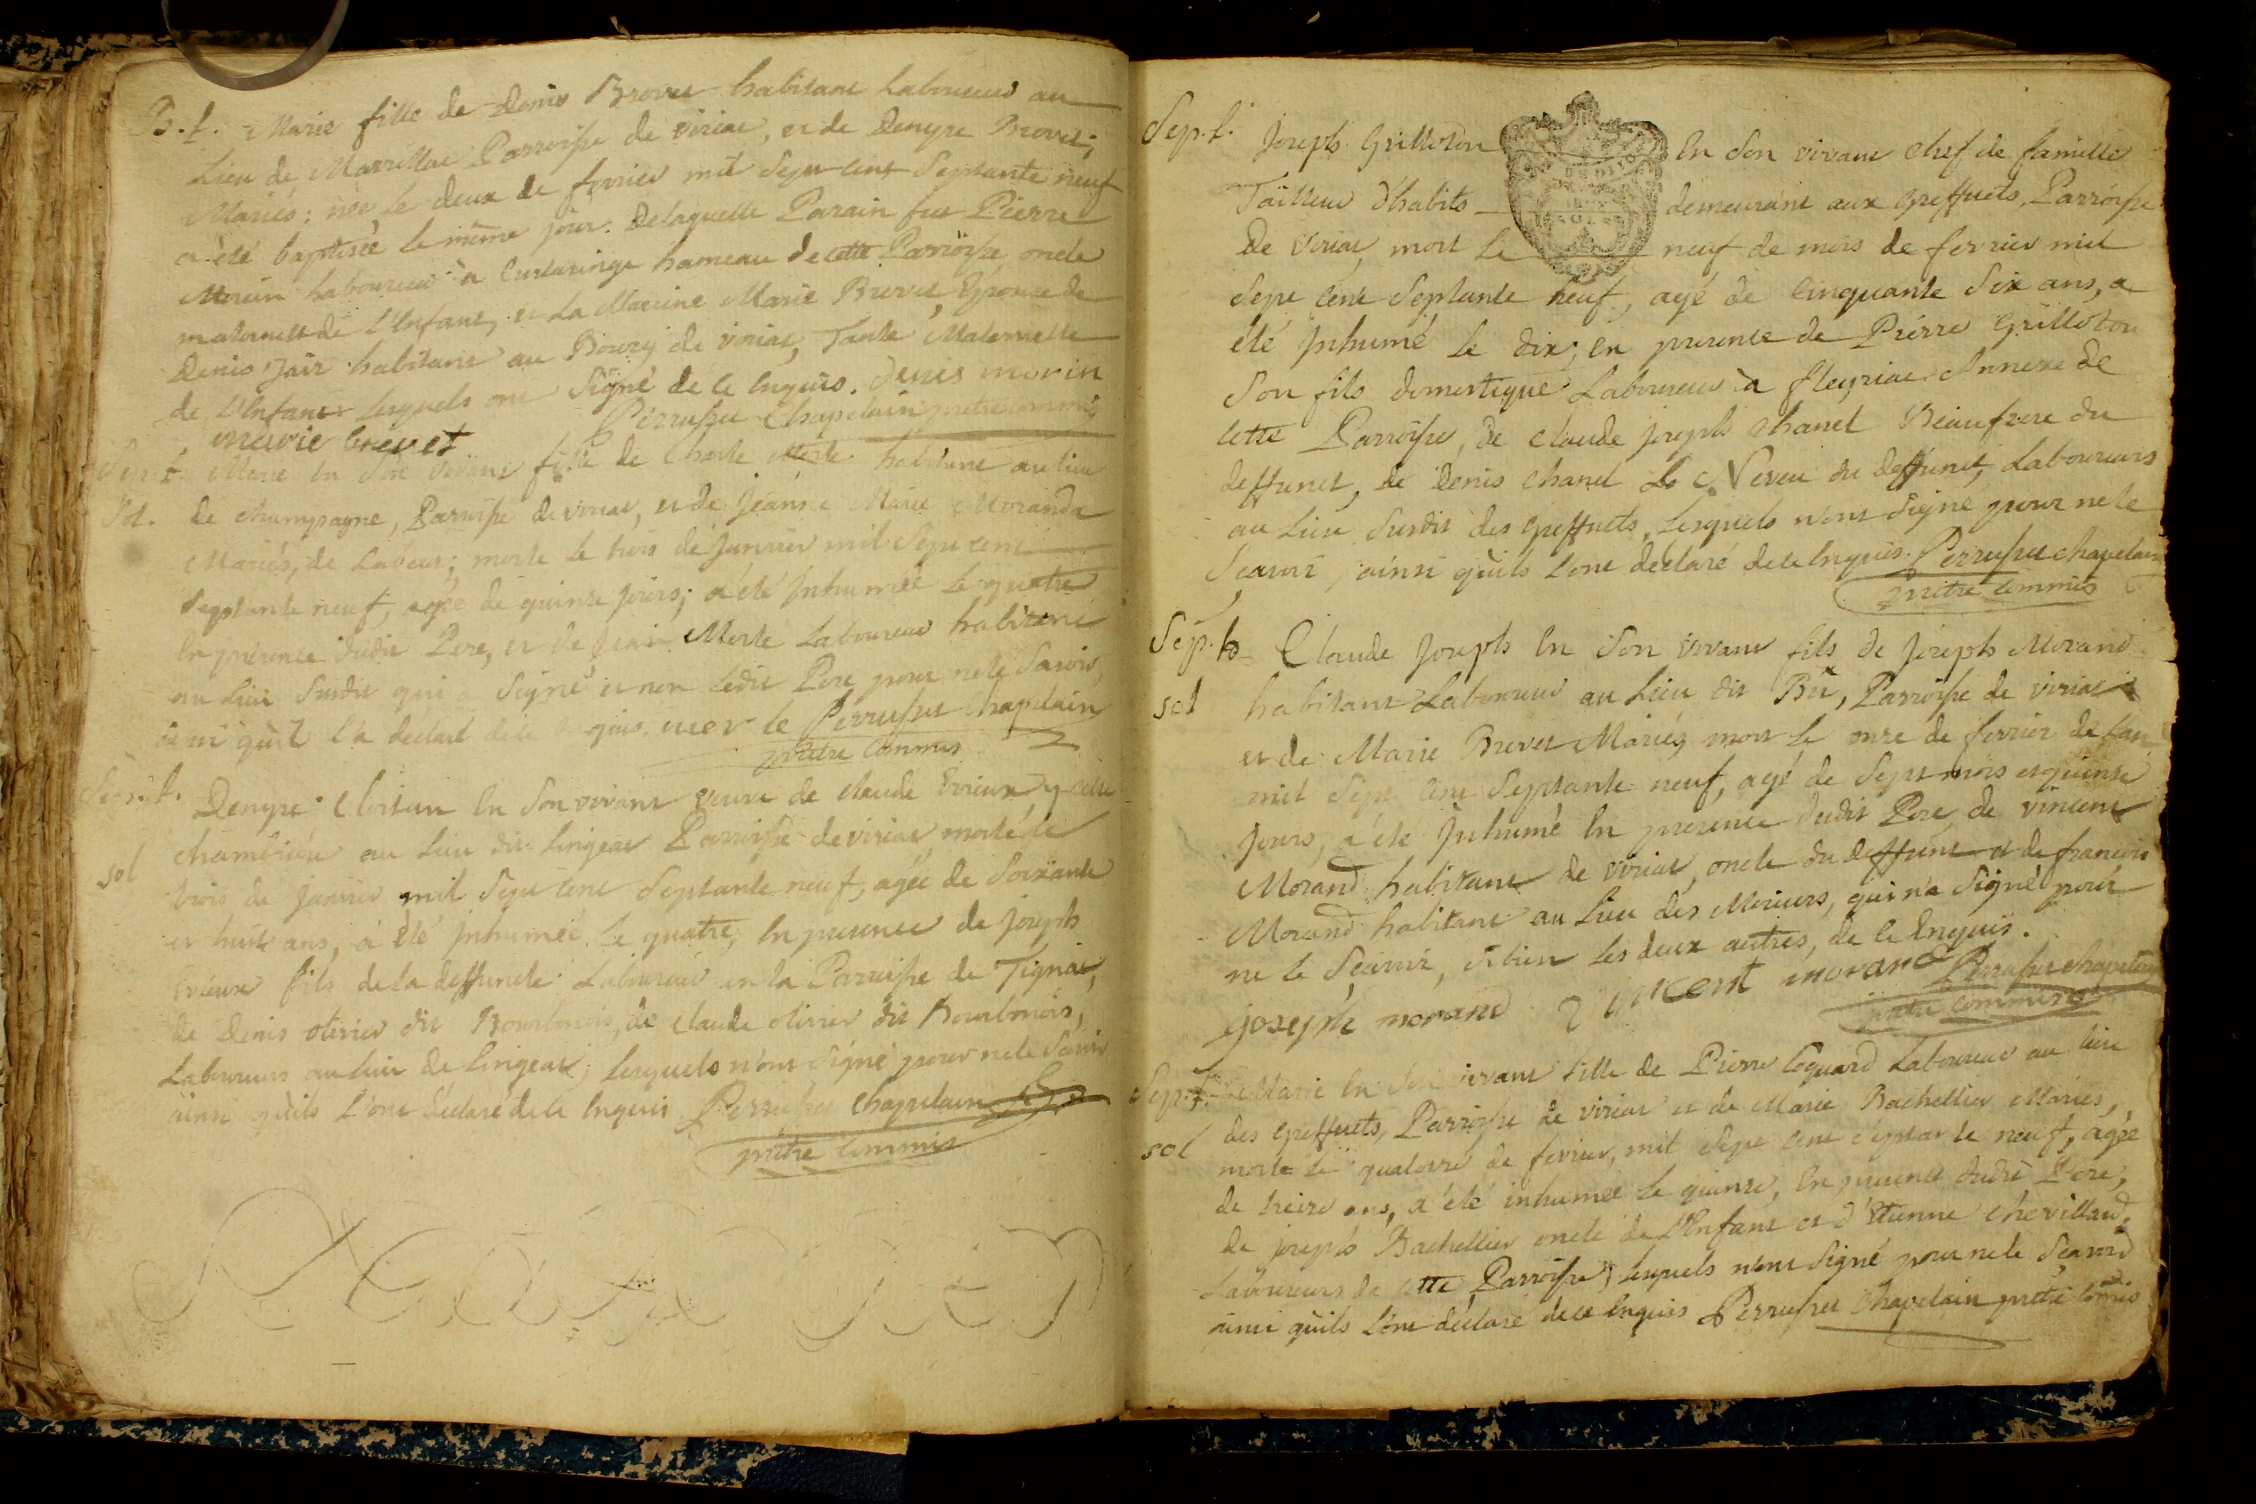 B. f. Marie fille de Denis Brevet habitant Laboureur au
Lieu de Marillac Parroisse de viriat, et de Denyse Brevet;
Mariés; née le deux de fevrier mil sept cent septante neuf
a été baptisée le même jour. De laquelle Parain fut Pierre
Morin Laboureur à Curtaringe hameau de cette Parroisse oncle
maternel de L'Enfant, et La Maraine Marie Brevet Epouse de
Denis Jair habitant au Bourg de viriat, Tante Maternelle
de L'Enfant lesquels ont signé de ce Enquis. denis morin
marie brevet Perruset Chapelain pretre commis
Sep. f. Marie En son vivant fille de Charle Merle habitant au lieu
sol. de champagne, Parroisse de viriat, et de Jeanne Marie Morand
Mariés, de Labeur; morte le trois de Janvier mil sept cent
septante neuf, agée de quinze jours; a été Inhumée le quatre
En presence dudit Pere, et de Jean Merle Laboureur habitant
au Lieu susdit qui a signé et non ledit Pere pour ne le savoir,
ainsi qu'il l'a declaré de ce Enquis. merle Perruset chapelain
pretre commis
Sep. f. Denyse En son vivant veuve de Claude Erieux
sol chambriere au Lieu dit Lingeat Parroisse de viriat, morte le
trois de Janvier mil sept cent septante neuf, agée de soixante
et huit ans, a été Inhumée le quatre, En presence de Joseph
Erieux fils de la deffuncte Laboureur en la Parroisse de
de Denis olivier dit Bourbonois, de Claude olivier dit Bourbonois,
Laboureurs au lieu de Lingeat, lesquels n'ont signé pour ne le savoir
ainsi qu'ils l'ont déclaré de ce Enquis Perruset Chapelain
pretre commis
Sep. f. Joseph Grilloton En son vivant chef de famille
Tailleur d'habits demeurant aux Greffuets, Parroisse
De Viriat, mort le neuf de mois de fevrier mil
sept cent septante neuf, agé de cinquante six ans, a
été Inhumé le dix; En presence de Pierre Grilloton
son fils domestique Laboureur à Fleyriat Annexe de
cette Parroisse, de Claude joseph Chanel Beaufrere du
deffunct, de Denis Chanel Le Neveu du deffunct, Laboureurs
au Lieu susdit des Greffuets, lesquels n'ont signé pour ne le
sçavoir, ainsi qu'ils l'ont déclaré de ce Enquis. Perruset chapelain
pretre commis
Sep. h Claude Joseph En son vivant fils de Joseph Morand
sol habitant Laboureur au Lieu dit, Parroisse de viriat
et de Marie Brevet Mariés, mort le onze de fevrier de l'an
mil sept cent septante neuf, agé de sept mois et quinze
jours, a été Inhumé En presence dudit Pere, de Vincent
Morand habitant de viriat, oncle du deffunt et de francois
Morand habitant au Lieu des, qui n'a signé pour
ne le sçavoir, si bien les deux autres, de ce Enquis.
joseph morand vincent morand Perruset chapelain
pretre commis
Sep. f. Marie En son vivant fille de Pierre Coquard Laboureur au lieu
sol des Greffuets, Parroisse de viriat et de Marie Bachellier Mariés,
morte le quatorze de fevrier, mil sept cent septante neuf, agée
de treize ans, a été inhumée le quinze, En presence dudit Pere,
de joseph Bachellier oncle de L'Enfant et d'Etienne Chevillard,
Laboureurs de cette Parroisse, lesquels n'ont signé pour ne le sçavoir
ainsi qu'ils l'ont déclaré de ce Enquis Perruset Chapelain pretre commis